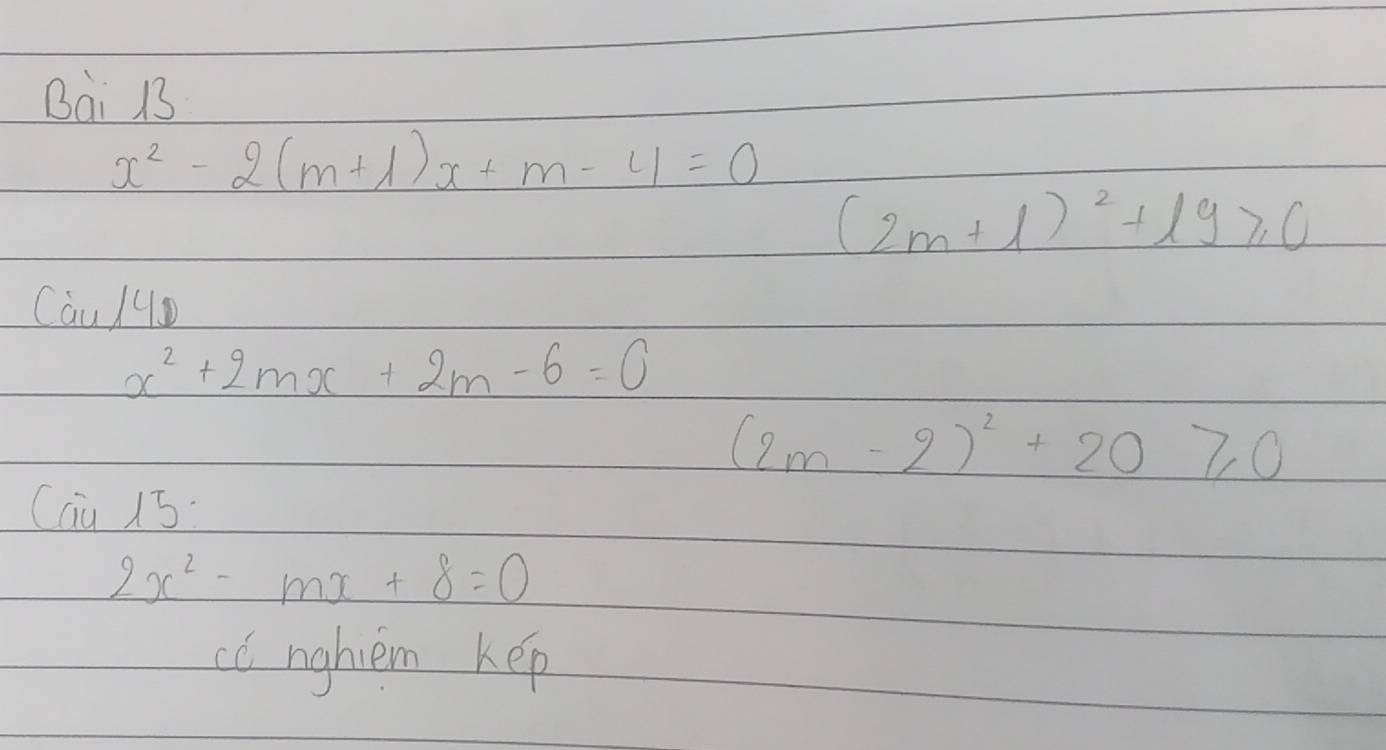 Bài 13
x² - 2(m+1)x + m - 4 = 0
(2m + 1)² + 19 ≥ 0
Câu 14
x² + 2mx + 2m - 6 = 0
(2m - 2)² + 20 ≥ 0
Câu 15:
2x² - mx + 8 = 0
có nghiệm kép